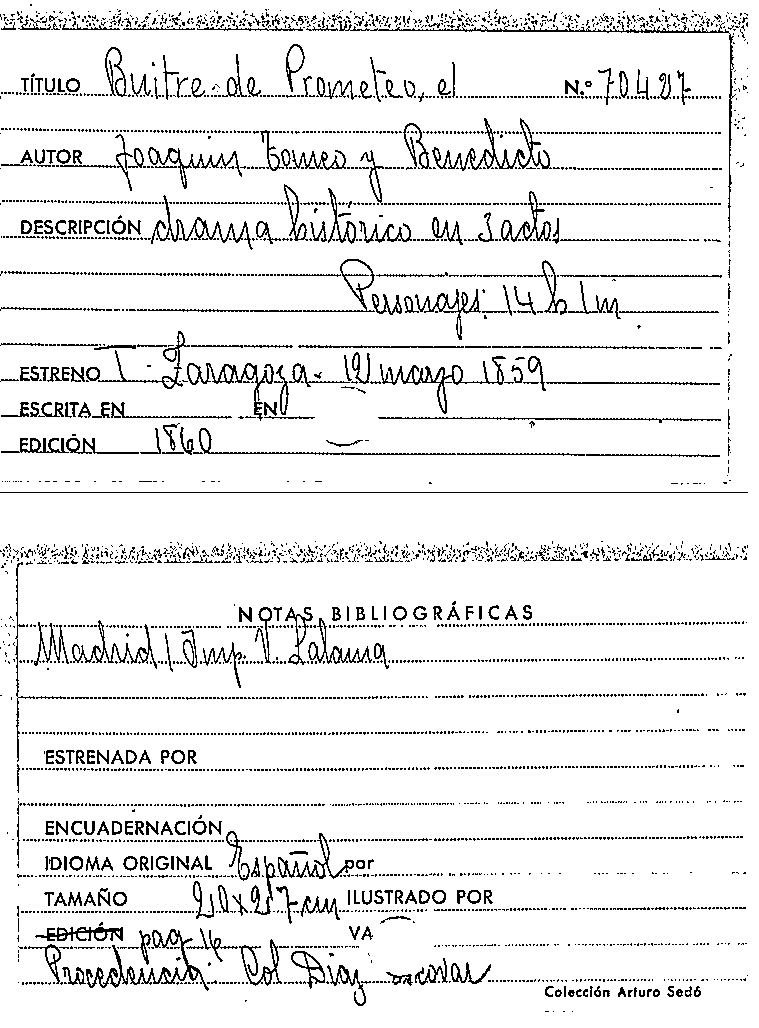 TÍTULO Buitre de Prometeo, el N.º 70427
AUTOR Joaquin Tomeo y Benedicto
DESCRIPCIÓN drama histórico en 3 actos
Personajes: 14 h 1 m
ESTRENO T. Zaragoza - 12 marzo 1859
ESCRITA EN EN
EDICIÓN 1860
NOTAS BIBLIOGRÁFICAS
Madrid / Imp. V. Lalama
ESTRENADA POR
ENCUADERNACIÓN
IDIOMA ORIGINAL Español por
TAMAÑO 20 x 27 cm ILUSTRADO POR
EDICIÓN pag 16 VA
Procedencia: Col Diaz Escovar
Colección Arturo Sedó